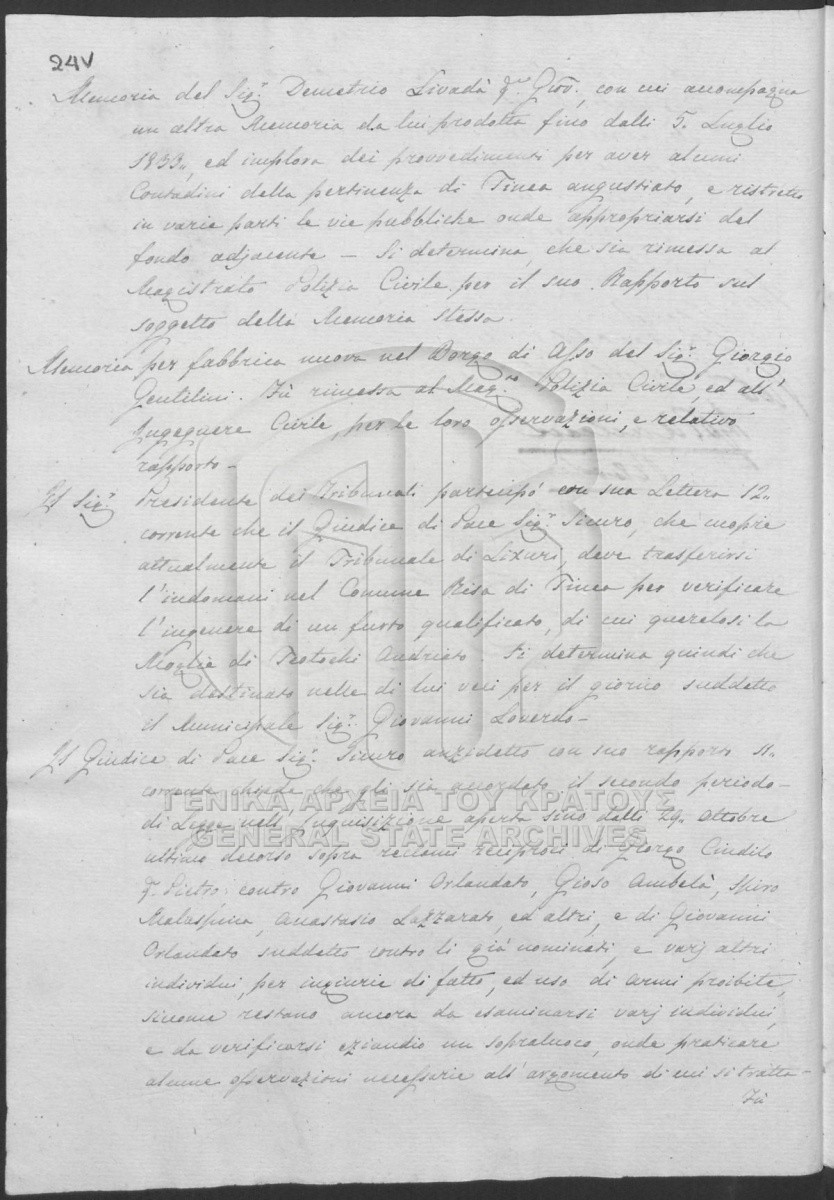 24V
Memoria del Sig.r Demetrio Livadà q.m Gio:, con cui accompagna
un altra Memoria da lui prodotta fino dalli 5. Luglio
1833., ed implora dei provvedimenti per aver alcuni
Contadini della pertinenza di Tinea angustiato, e ristretto
in varie parti le vie pubbliche onde appropriarsi del
fondo adjacente — Si determina, che sia rimessa al
Magistrato Polizia Civile per il suo Rapporto sul
soggetto della Memoria stessa.
Memoria per fabbrica nuova nel Borgo di Asso del Sig.r Giorgio
Gentilini. Fù rimessa al Mag.to Polizia Civile, ed all'
Ingegnere Civile, per le loro osservazioni, e relativo
rapporto —
Il Sig.r Presidente dei Tribunali partecipò con sua Lettera 12.
corrente che il Giudice di Pace Sig.r Sicuro, che cuopre
attualmente il Tribunale di Lixuri, deve trasferirsi
l'indomani nel Comune Risa di Tinea per verificare
l'ingenere di un furto qualificato, di cui querelosi la
Moglie di Teotochi Andriato. Si determina quindi che
sia destinato nelle di lui veci per il giorno suddetto
il Municipale Sig.r Giovanni Loverdo —
Il Giudice di Pace Sig.r Sicuro anzidetto con suo rapporto 11.
corrente chiede che gli sia accordato il secondo periodo
di Legge nell' Inquisizione aperta sino dalli 29. Ottobre
ultimo decorso sopra reclami reciproci di Giorgo Cindilo
q.m Pietro, contro Giovanni Orlandato, Gioso Ambelà, Spiro
Malaspina, Anastasio Lazzarato, ed altri, e di Giovanni
Orlandato suddetto contro li già nominati, e varj altri
individui, per ingiurie di fatto, ed uso di armi proibite,
siccome restano ancora da esaminarsi varj individui,
e da verificarsi eziandio un sopraluoco, onde praticare
alcune osservazioni necessarie all' argomento di cui si tratta —
Fù
ΓΕΝΙΚΑ ΑΡΧΕΙΑ ΤΟΥ ΚΡΑΤΟΥΣ
GENERAL STATE ARCHIVES